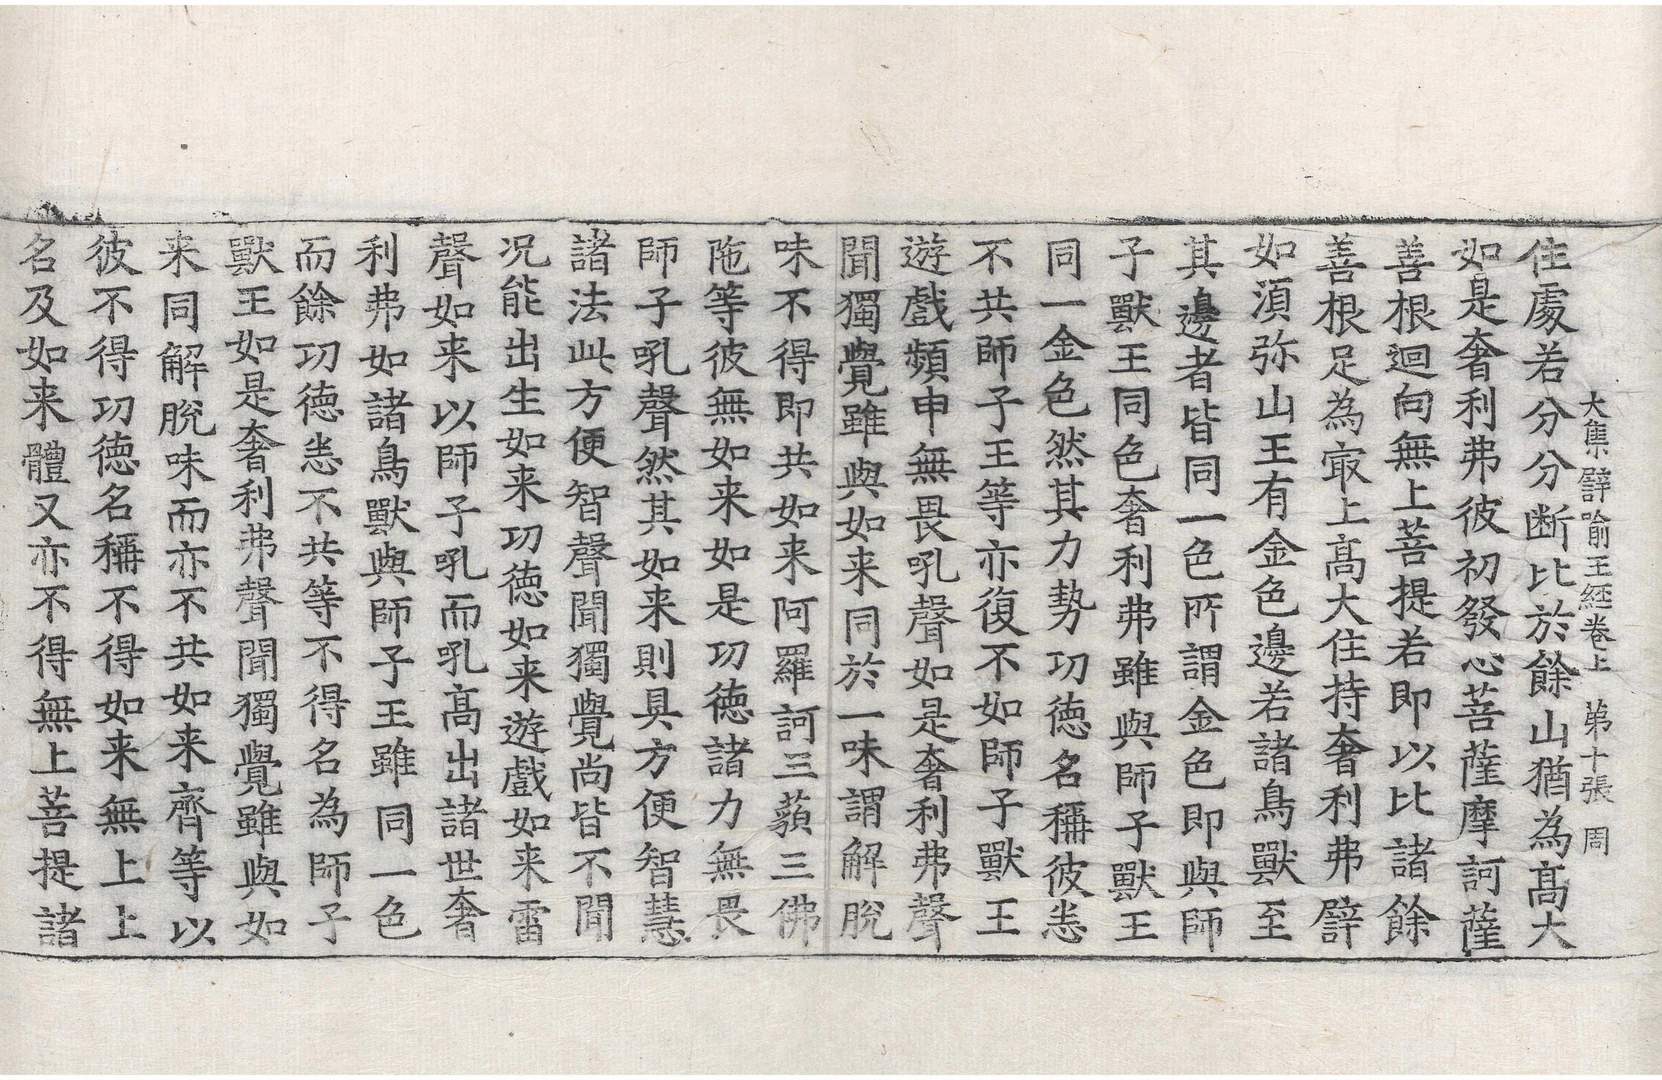 大集譬喻王經卷上 第十張 周
住處若分分断比於餘山猶為髙大
如是奢利弗彼初發心菩薩摩訶薩
善根迴向無上菩提若即以比諸餘
善根足為㝡上髙大住持奢利弗譬
如湏弥山王有金色邊若諸鳥獸至
其邊者皆同一色所謂金色即與師
子獸王同色奢利弗雖與師子獸王
同一金色然其力勢功德名稱彼悉
不共師子王等亦復不如師子獸王
遊戲頻申無畏吼聲如是奢利弗聲
聞獨覺雖與如来同於一味謂解脫
味不得即共如来阿羅訶三藐三佛
陁等彼無如来如是功德諸力無畏
師子吼聲然其如来則具方便智慧
諸法此方便智聲聞獨覺尚皆不聞
况能出生如来功德如来遊戲如来雷
聲如来以師子吼而吼髙出諸世奢
利弗如諸鳥獸與師子王雖同一色
而餘功德悉不共等不得名為師子
獸王如是奢利弗聲聞獨覺雖與如
来同解脫味而亦不共如来齊等以
彼不得功德名稱不得如来無上上
名及如来體又亦不得無上菩提諸